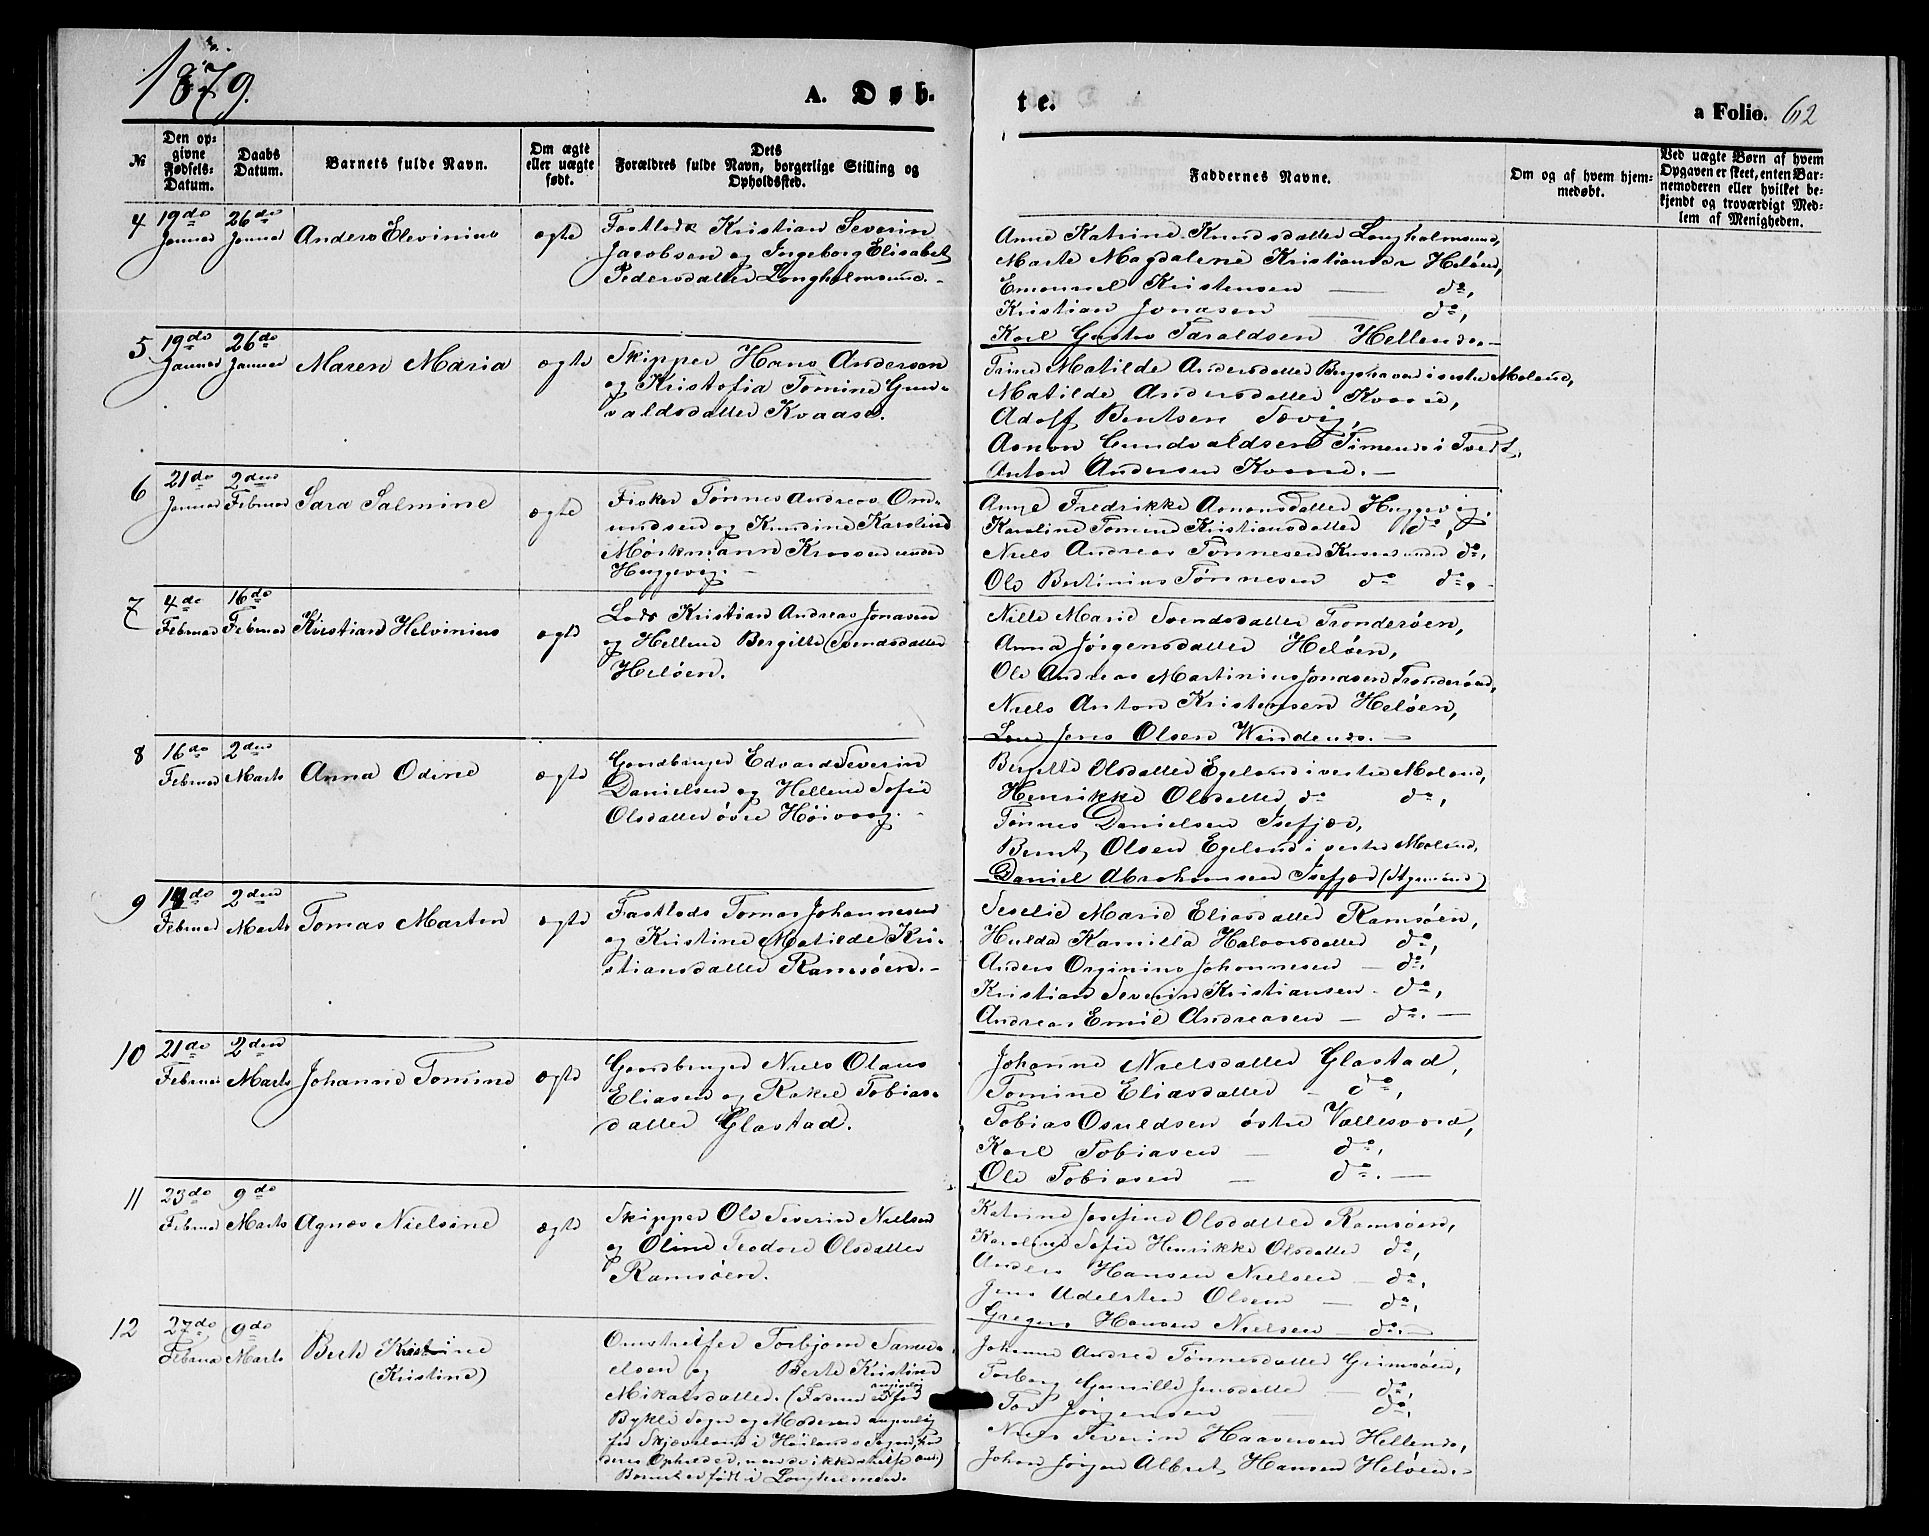 1879.
A. Døb-
te.
a Folio. 62
№
Den op-
givne
Fødsels-
Datum.
Daabs
Datum.
Barnets fulde Navn.
Om ægte
eller uægte
født.
Dets
Forældres fulde Navn, borgerlige Stilling og
Opholdssted.
Faddernes Navne.
Om og af hvem hjem-
medøbt.
Ved uægte Børn af hvem
Opgaven er skeet, enten Bar-
nemoderen eller hvilket be-
kjendt og troværdigt Med-
lem af Menigheden.
4
19de
Januar
26de
Januar
Anders Elevinius
ægte
Fastlods Kristian Severin
Jacobsen og Ingeborg Elisabet
Pedersdatter Langholmsund.
Anne Katrine Knudsdatter Langholmsund,
Marte Magdalene Kristiansdr Heløen,
Emanuel Kristensen — do,
Kristian Jonasen — do,
Karl Gustav Taraldsen Hellends.-
5
19de
Januar
26de
Januar
Maren Maria
ægte
Skipper Hans Andersen
og Kristofia Tomine Gun-
valdsdatter Kvaase.
Trine Matilde Andersdatter i vestre Moland,
Matilde Andersdatter Kvaase,
Adolf Bentsen Sævig,
Asmon Gundvaldsen i Tvedt,
Anton Andersen Kvaase.-
6
21de
Januar
2den
Februar
Sara Salmine
ægte
Fisker Tønnes Andreas Om-
undsen og Knudine Karoline
Mørkmann under
Huggevig.-
Anne Fredrikke Asmonsdatter Huggevig,
Karoline Tomine Kristiansdatter do,
Niels Andreas Tønnesen do,
Ole Bertinius Tønnesen do do.-
7
4de
Februar
16de
Februar
Kristian Helvinius
ægte
Lods Kristian Andreas Jonasen
og Hellene Bergitte Svendsdatter
Heløen.
Nille Marie Svendsdatter Tronderøen,
Anna Jørgensdatter Heløen,
Ole Andreas Martinius Jonasen Tronderøen,
Niels Anton Kristensen Heløen,
Jens Olsen
8
16de
Februar
2den
Marts
Anna Odine
ægte
Gaardbruger Edvard Severin
Danielsen og Hellene Sofie
Olsdatter øvre Høivaag.
Bergitte Olsdatter Egeland i vestre Moland,
Henrikke Olsdatter do do,
Tønnes Danielsen Isefjær,
Bernt Olsen Egeland i vestre Moland,
Daniel Abrahamsen Isefjær
9
Februar
2den
Marts
Tomas Marten
ægte
Fastlods Tomas Johannesen
og Kristine Matilde Kri-
stiansdatter Ramsøen.-
Seselie Marie Eliasdatter Ramsøen,
Hulda Kamilla Halvorsdatter do,
Anders Orginius Johannesen — do,
Kristian Severin Kristiansen — do,
Andreas Emil Andreasen — do.—
10
21de
Februar
2den
Marts
Johanne Tomine
ægte
Gaardbruger Niels Olaus
Eliasen og Rakel Tobias-
datter Glastad.
Johanne Nielsdatter Glastad,
Tomine Eliasdatter — do,
Tobias Osuldsen østre Vallesværd,
Karl Tobiasen — do,
Ole Tobiasen — do.—
11
23de
Februar
9de
Marts
Agnes Nielsine
ægte
Skipper Ole Severin Nielsen
og Oline Teodore Olsdatter
Ramsøen.
Katrine Josefine Olsdatter Ramsøen,
Karoline Sofie Henrikke Olsdatter do,
Anders Hansen Nielsen — do,
Jens Adelsten Olsen — do,
Gregers Hansen Nielsen — do.—
12
27de
Februar
9de
Marts
Berte Kristine
(Kristine)
Omstreifer Torbjørn Samu-
elsen og Berte Kristine
Mikalsdatter. (Faderen angivelig fød
Bykle Sogn og Moderen angivelig
fød Skjæveland i Høilands Sogn,
Barnet er født i
Johanne Andrea Tønnesdatter Grimsøen,
Torborg Gunille Jensdatter do,
Tor Jørgensen — do,
Niels Severin Haavorsen Hellends,
Johan Jørgen Albret Hansen Heløen.-